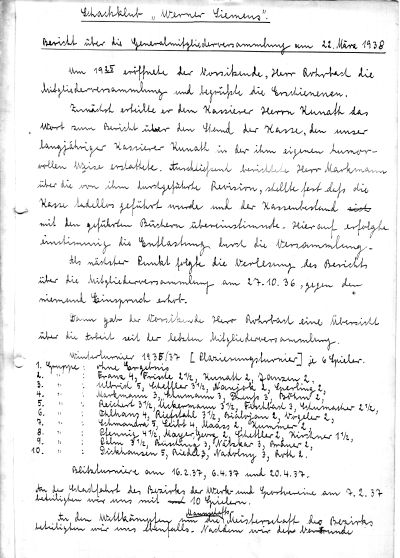 Schachklub „Werner Siemens".
Bericht über die Generalmitgliederversammlung am 22. März 1938
Um eröffnete der Vorsitzende, Herr Rohrbach die
Mitgliederversammlung und begrüßte die Erschienenen.
Zunächst erteilte er dem Kassierer Herrn Kunath das
Wort zum Bericht über den Stand der Kasse, den unser
langjähriger Kassierer Kunath in der ihm eigenen humor-
vollen Weise erstattete. Anschließend berichtete Herr Markmann
über die von ihm durchgeführte Revision, stellte fest daß die
Kasse tadellos geführt wurde und der Kassenbestand
mit den geführten Büchern übereinstimmte. Hierauf erfolgte
einstimmig die Entlastung durch die Versammlung.
Als nächster Punkt folgte die Verlesung des Berichts
über die Mitgliederversammlung am 27.10.36, gegen den
niemand Einspruch erhob.
Dann gab der Vorsitzende Herr Rohrbach eine Übersicht
über die Arbeit seit der letzten Mitgliederversammlung.
Winterturnier [Klassierungsturnier] je 6 Spieler.
1. Gruppe: ohne Ergebnis
2. " Franz 4, 2½, Kunath 2, Janzen 2.
3. " Ullrich 5, Scheffler 3½, 2, Sperling 2,
4. " Markmann 3, 3, 3, Böhm 2,
5. " Reichert 3½, 3½, Fischbach 3, Schumacher 2½,
6. " 4, 2, 2, 2.
7. " Schmandra 5, 4, Maass 2, Kummer 2.
8. " Pfennig 4½, Mayer 2, Scheffler 2, Kirchner 1½,
9. " Palm 3½, 3, 3, 2.
10. " Dickhausen 5, Riedel 3, Nadolny 3, Roth 2.
Blitzturniere am 16.2.37, 6.4.37 und 20.4.37.
An der Schachfahrt des Bezirks der Werk- und Sportvereine am 7.2.37
beteiligten wir uns mit 10 Spielern.
An den Wettkämpfen um die Mannschafts Meisterschaft des Bezirks
beteiligten wir uns ebenfalls. Nachdem wir den